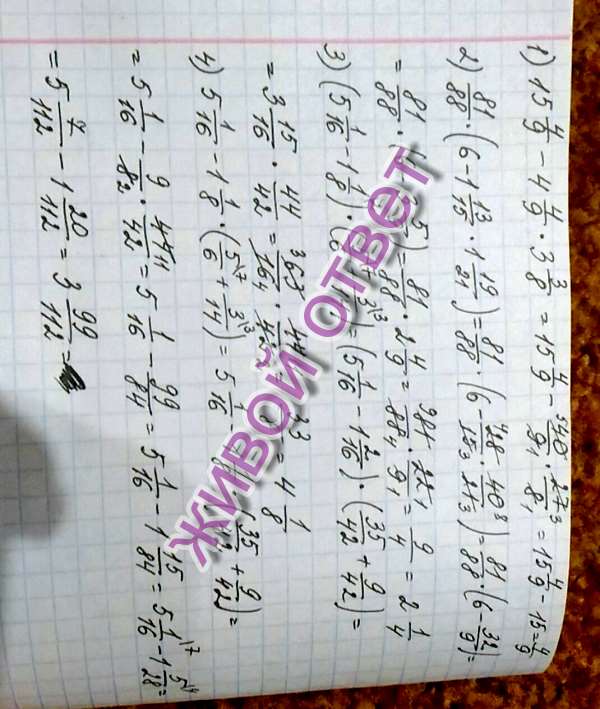 1) 15 4/9 - 4 4/9 · 3 3/8 = 15 4/9 - 40/9 · 27/8 = 15 4/9 - 15 = 4/9
2) 81/88 · (6 - 1 13/15 · 1 19/21) = 81/88 · (6 - 28/15 · 40/21) = 81/88 · (6 - 32/9) =
= 81/88 · ( ) = 81/88 · 2 4/9 = 81/88 · 22/9 = 9/4 = 2 1/4
3) (5 1/16 - 1 1/8) · ( ) = (5 1/16 - 1 2/16) · (35/42 + 9/42) =
= 3 15/16 · 44/42 = 63/16 · 44/42 = 33/8 = 4 1/8
4) 5 1/16 - 1 1/8 · (5/6 + 3/14) = 5 1/16 - (35/42 + 9/42) =
= 5 1/16 - 9/8 · 44/42 = 5 1/16 - 99/84 = 5 1/16 - 1 15/84 = 5 1/16 - 1 5/28 =
= 5 7/112 - 1 20/112 = 3 99/112
ЖИВОЙ ОТВЕТ